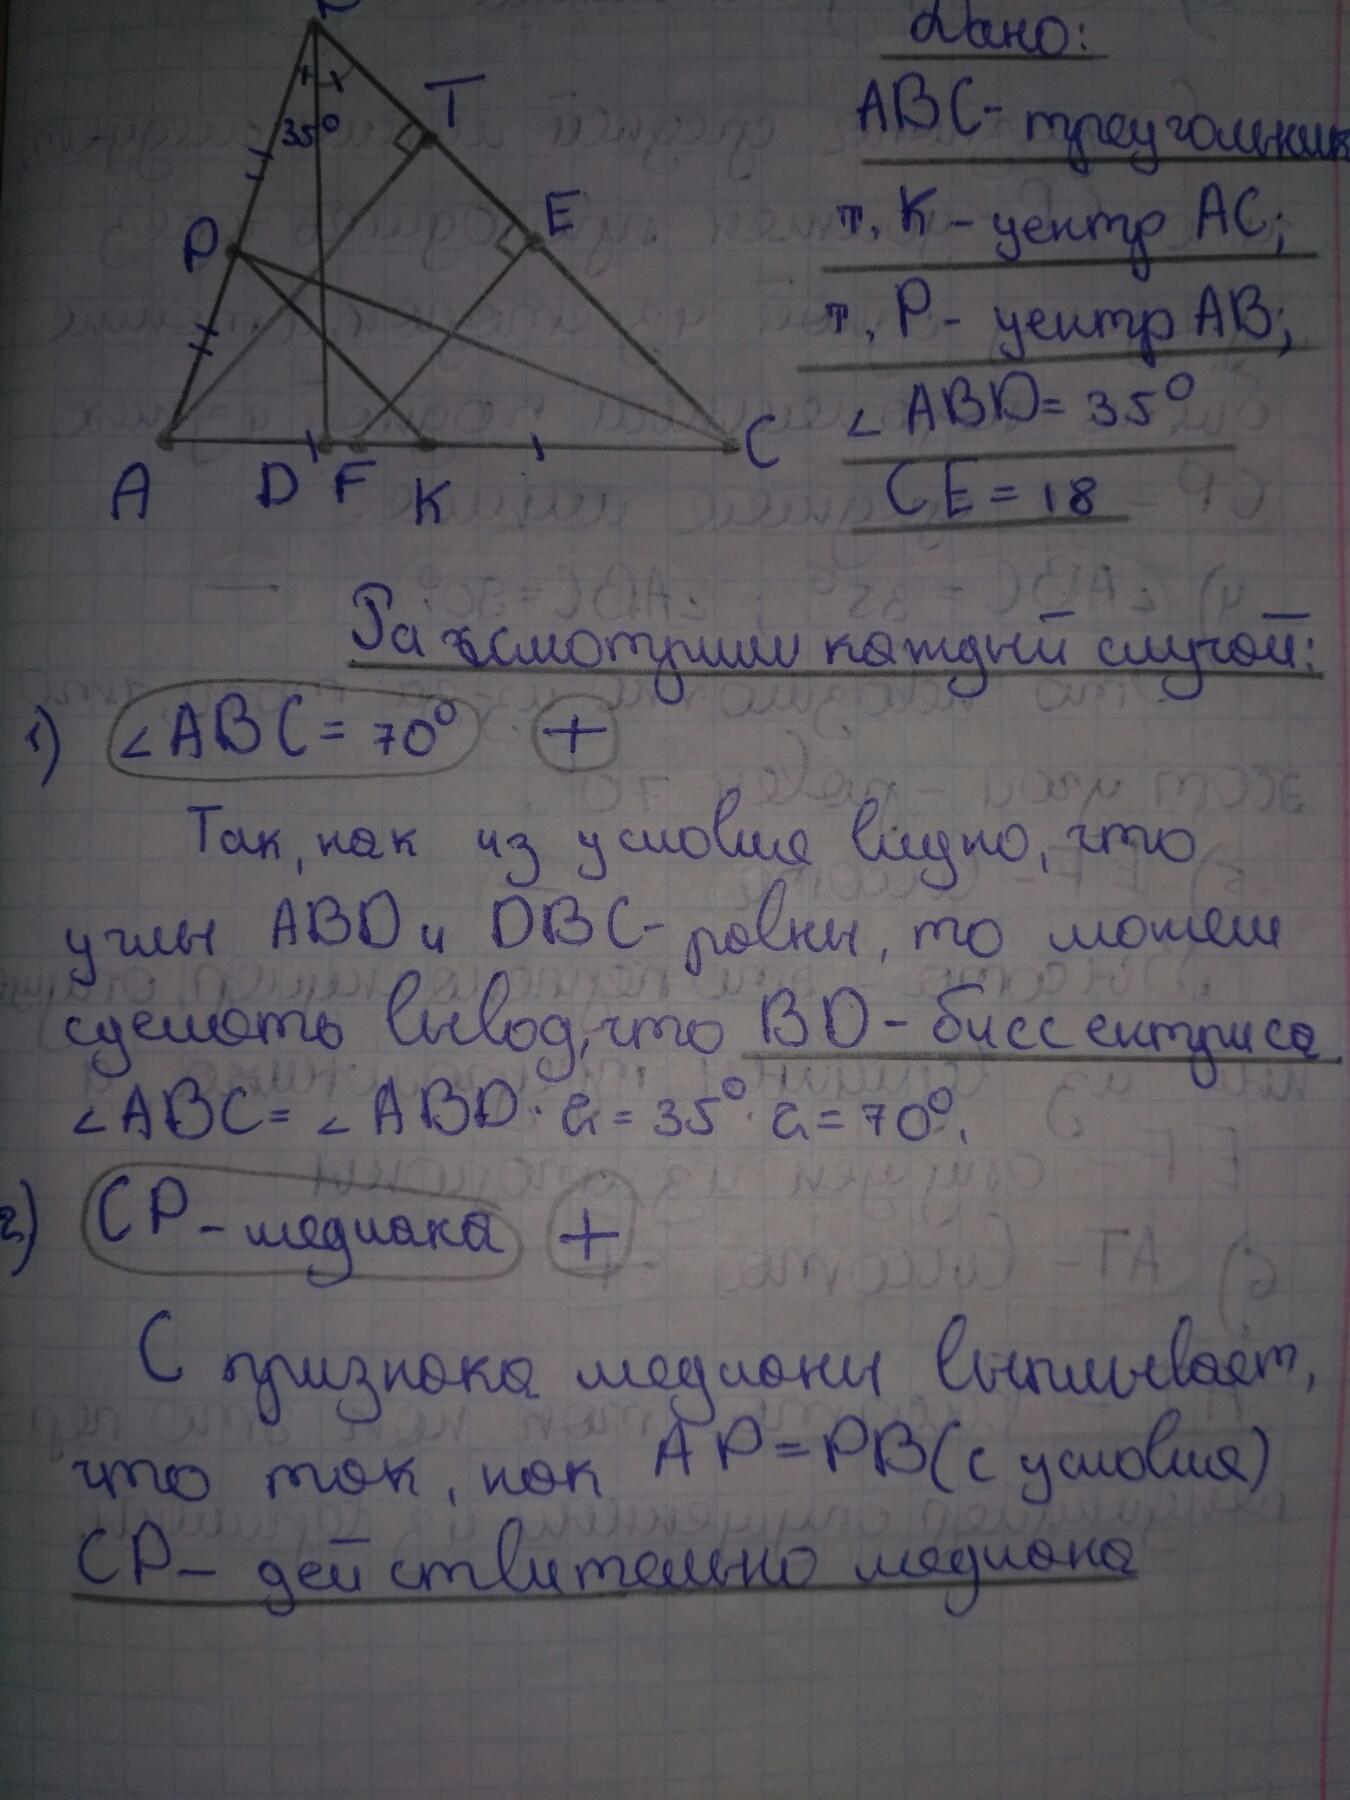 Дано:
ABC- треугольник
т. K - центр AC;
т. P - центр AB;
∠ ABD = 35°
CE = 18
35°
T
P
E
A
D
F
K
C
Рассмотрим каждый случай:
1) ∠ABC = 70° +
Так, как из условия видно, что
углы ABD и DBC- равны, то можем
сделать вывод, что BD - биссектриса
∠ABC = ∠ABD · 2 = 35° · 2 = 70°.
2) CP - медиана +
С признака медианы выплывает,
что так, как AP = PB (с условия)
CP - действительно медиана